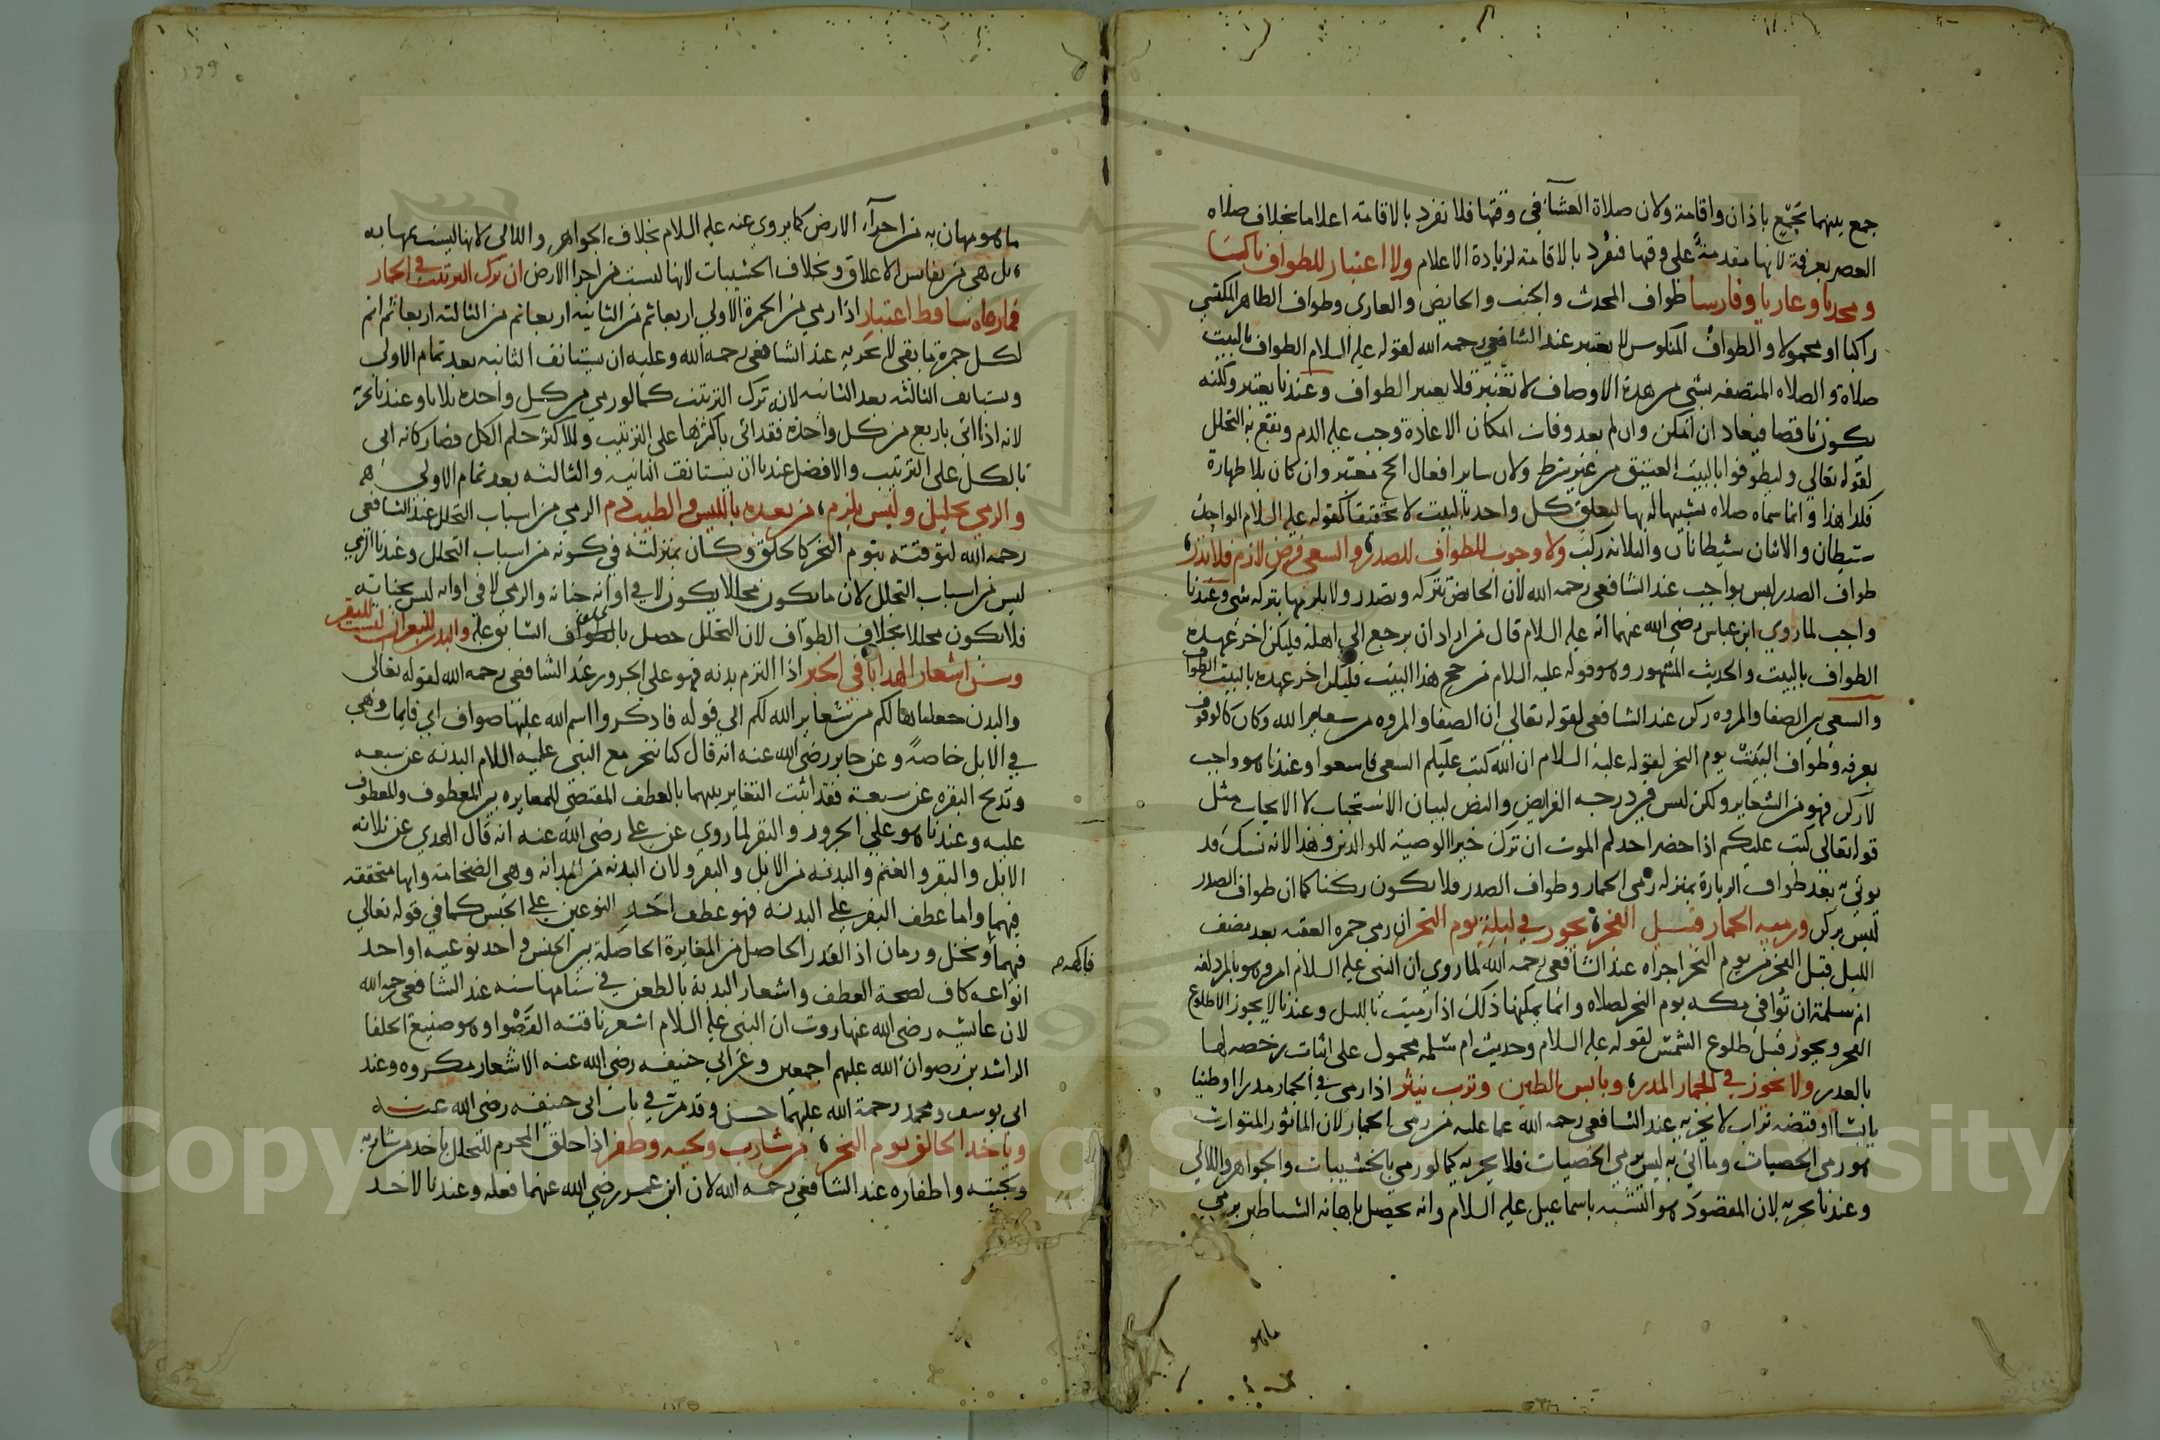 جمع بينهما بجمع باذان واقامة ولان صلاة العشاء في وقتها فلا تفرد بالاقامة اعلاما بخلاف صلاة
العصر بعرفة لانها مقدمة على وقتها فتفرد بالاقامة لزيادة الاعلام ولا اعتبار للطواف ناكسا
ومحدثا وعاريا وفارسا طواف المحدث والجنب والحايض والعاري وطواف الطاهر المكتسي
راكبا او محمولا والطواف المنكوس لا يعتبر عند الشافعي رحمه الله لقوله عليه السلام الطواف بالبيت
صلاة والصلاه المتصفه بشي من هذه الاوصاف لا تعتبر فلا يعتبر الطواف وعندنا يعتبر ولكنه
يكون ناقصا فيعاد ان امكن وان لم يعد وفات امكان الاعادة وجب عليه الدم ويقع به التحلل
لقوله تعالى وليطوفوا بالبيت العتيق من غير شرط ولان ساير افعال الحج معتبر وان كان بلا طهارة
فكذا هذا وانما سماه صلاه تشبيها لها لتعلق كل واحد بالبيت لا تحقيقا كقوله عليه السلام الواحد
شيطان والاثنان شيطانان والثلاثه ركب ولا وجوب للطواف للصدر والسعي فرض لازم فلا تذر
طواف الصدر ليس بواجب عند الشافعي رحمه الله لان الحايض تتركه وتصدر ولا يلزمها بتركه شي وعندنا
واجب لما روي ابن عباس رضي الله عنهما انه عليه السلام قال من اراد ان يرجع الى اهله فليكن اخر عهده
الطواف بالبيت والحديث المشهور وهو قوله عليه السلام من حج هذا البيت فليكن اخر عهده بالبيت الطواف
والسعي بين الصفا والمروه ركن عند الشافعي لقوله تعالى ان الصفا والمروه من شعاير الله وكان كالوقوف
بعرفه وطواف البيت يوم النحر لقوله عليه السلام ان الله كتب عليكم السعي فاسعوا وعندنا هو واجب
لا ركن فهو من الشعاير ولكن ليس في درجه الفرايض والنص لبيان الاستحباب لا الايجاب مثل
قوله تعالى كتب عليكم اذا حضر احدكم الموت ان ترك خيرا الوصية للوالدين وهذا لانه نسك قد
يوتى به بعد طواف الزيارة بمنزله رمي الجمار وطواف الصدر فلا يكون ركنا كما ان طواف الصدر
ليس بركن ورميه الجمار قبل الفجر يجوز في ليلة يوم النحر ان رمي جمره العقبه بعد نصف
الليل قبل الفجر من يوم النحر اجزاه عند الشافعي رحمه الله لما روي ان النبي عليه السلام امر وهو بالمزدلفه
ام سلمة ان توافي مكه يوم النحر لصلاه وانما يمكنها ذلك اذا رميت بالليل وعندنا لا يجوز الا طلوع
الفجر ويجوز قبل طلوع الشمس لقوله عليه السلام وحديث ام سلمه محمول على اثبات رخصه لها
بالعذر ولا تجوز في الجمار المدر ويابس الطين وترب ينثر اذا رمي في الجمار مدرا او طينا
يابسا او قبضه تراب لا يجزيه عند الشافعي رحمه الله عما عليه من رمي الجمار لان الماثور المتوارث
هو رمي الحصيات وما اتي به ليس برمي الحصيات فلا يجزيه كما لو رمي بالخشيبات والجواهر واللالي
وعندنا يجزيه لان المقصود هو التشبه باسماعيل عليه السلام وانه يحصل باهانة الشيطان برمي
ماهو
ما هو مهان به من اجزاء الارض كما يروي عنه عليه السلام بخلاف الجواهر واللالي لانها ليست بمهانه
بل هي من نفايس الاعلاق وبخلاف الخشيبات لانها ليست من اجزا الارض ان ترك الترتيب في الجمار
فما رماه ساقط اعتبار اذا رمي من الجمرة الاولى اربعا ثم من الثانيه اربعا ثم من الثالثه اربعا ثم اتم
لكل جمرة ما بقي لم يجزيه عند الشافعي رحمه الله وعليه ان يستانف الثانيه بعد تمام الاولى
ويستانف الثالثه بعد الثانيه لانه ترك الترتيب كما لو رمي من كل واحده ثلاثا وعندنا يجزيه
لانه اذا اتى باربع من كل واحدة فقد اتى باكثرها على الترتيب وللاكثر حكم الكل فصار كانه اتى
بالكل على الترتيب والافضل عندنا ان يستانف الثانيه والثالثه بعد تمام الاولى
والرمي تحليل وليس يلزم من بعده باللبس والطيب دم الرمي من اسباب التحلل عند الشافعي
رحمه الله لتوقته بيوم النحر كالحلق وكان بمنزلته في كونه من اسباب التحلل وعندنا الرمي
ليس من اسباب التحلل لان ما يكون محللا يكون لا في اوانه جناية والرمي لا في اوانه ليس بجنايه
فلا يكون محللا بخلاف الطواف لان التحلل حصل بالطواف السابق عليه والبدن للبعران ليست للبقر
وسن اشعار الهدايا في الخبر اذا التزم بدنه فهو على الجزور عند الشافعي رحمه الله لقوله تعالى
والبدن جعلناها لكم من شعاير الله لكم الى قوله فاذكروا اسم الله عليها صواف اي قايمات وهي
في الابل خاصة وعن جابر رضي الله عنه انه قال كنا ننحر مع النبي عليه السلام البدنه عن سبعه
وتذبح البقره عن سبعة فقد اثبت التغاير بينهما بالعطف المقتضي للمغايره بين المعطوف والمعطوف
عليه وعندنا هو على الجزور والبقر لما روي عن علي رضي الله عنه انه قال الهدي عن ثلاثه
الابل والبقر والغنم والبدنه من الابل والبقر ولان البدنه من البدانه وهي الضخامة وانها متحققه
فيهما واما عطف البقر على البدنه فهو عطف احد النوعين على الجنس كما في قوله تعالى
فيهما ونخل ورمان اذ القدر الحاصل من المغايرة الحاصلة بين الجنس واحد نوعيه او احد
فاكهة
انواعه كاف لصحة العطف واشعار البدنة بالطعن في سنامها سنه عند الشافعي رحمه الله
لان عايشه رضي الله عنها روت ان النبي عليه السلام اشعر ناقته القصوا وهو صنيع الخلفا
الراشدين رضوان الله عليهم اجمعين وعن ابي حنيفه رضي الله عنه الاشعار مكروه وعند
ابي يوسف ومحمد رحمة الله عليهما حسن وقد مرت في باب ابي حنيفه رضي الله عنه
وياخذ الحالق يوم النحر من شارب ولحيه وظفر اذا حلق المحرم للتحلل ياخذ من شاربه
ولحيته واظفاره عند الشافعي رحمه الله لان ابن عمر رضي الله عنهما فعله وعندنا لا ياخذ